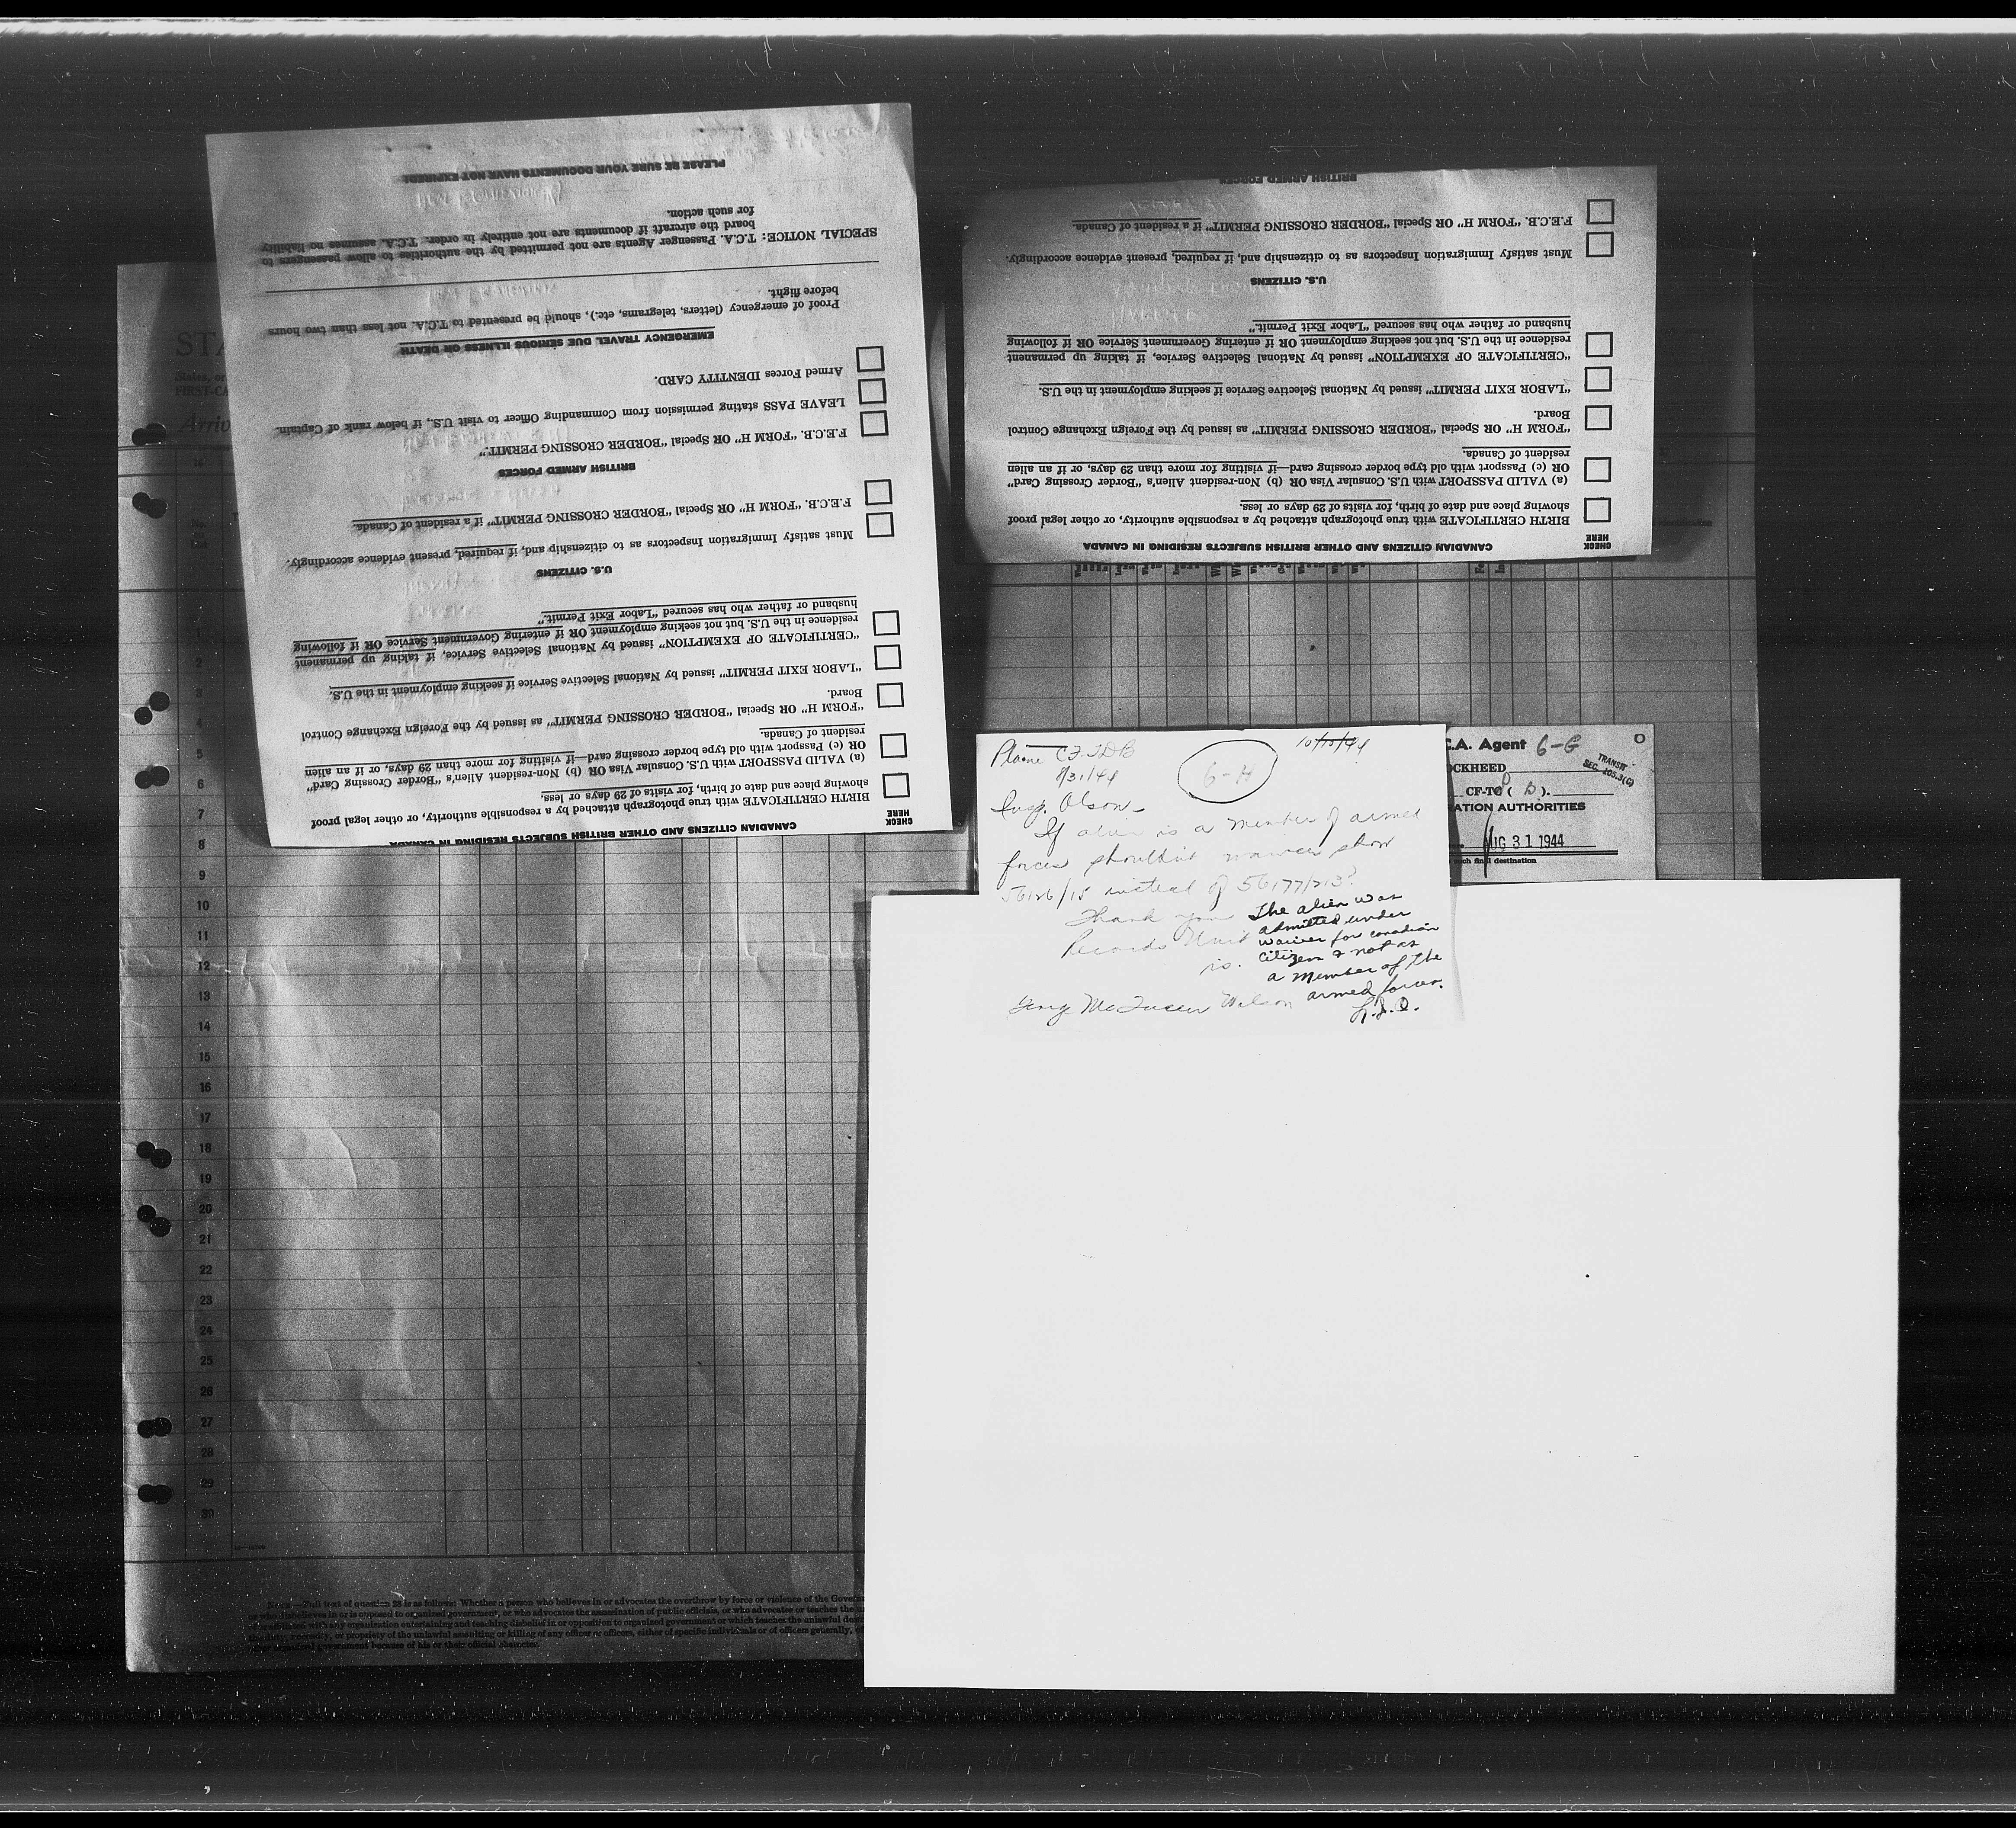 PLEASE BE SURE YOUR DOCUMENTS HAVE NOT EXPIRED!
SPECIAL NOTICE: T.C.A. Passenger Agents are not permitted by the authorities to allow passengers to
board the aircraft if documents are not entirely in order. T.C.A. assumes no liability
for such action.
Proof of emergency (letters, telegrams, etc.), should be presented to T.C.A. not less than two hours
before flight.
EMERGENCY TRAVEL DUE SERIOUS ILLNESS OR DEATH
Armed Forces IDENTITY CARD.
LEAVE PASS stating permission from Commanding Officer to visit U.S., if below rank of Captain.
F.E.C.B. "FORM H" OR Special "BORDER CROSSING PERMIT."
BRITISH ARMED FORCES
F.E.C.B. "FORM H" OR Special "BORDER CROSSING PERMIT" if a resident of Canada.
Must satisfy Immigration Inspectors as to citizenship and, if required, present evidence accordingly.
U.S. CITIZENS
"CERTIFICATE OF EXEMPTION" issued by National Selective Service, if taking up permanent
residence in the U.S. but not seeking employment OR if entering Government Service OR if following
husband or father who has secured "Labor Exit Permit."
"LABOR EXIT PERMIT" issued by National Selective Service if seeking employment in the U.S.
"FORM H" OR Special "BORDER CROSSING PERMIT" as issued by the Foreign Exchange Control
Board.
(a) VALID PASSPORT with U.S. Consular Visa OR (b) Non-resident Alien's "Border Crossing Card"
OR (c) Passport with old type border crossing card—if visiting for more than 29 days, or if an alien
resident of Canada.
BIRTH CERTIFICATE with true photograph attached by a responsible authority, or other legal proof
showing place and date of birth, for visits of 29 days or less.
CHECK
HERE
CANADIAN CITIZENS AND OTHER BRITISH SUBJECTS RESIDING IN CANADA
BRITISH ARMED FORCES
F.E.C.B. "FORM H" OR Special "BORDER CROSSING PERMIT" if a resident of Canada.
Must satisfy Immigration Inspectors as to citizenship and, if required, present evidence accordingly.
U.S. CITIZENS
"CERTIFICATE OF EXEMPTION" issued by National Selective Service, if taking up permanent
residence in the U.S. but not seeking employment OR if entering Government Service OR if following
husband or father who has secured "Labor Exit Permit."
"LABOR EXIT PERMIT" issued by National Selective Service if seeking employment in the U.S.
"FORM H" OR Special "BORDER CROSSING PERMIT" as issued by the Foreign Exchange Control
Board.
(a) VALID PASSPORT with U.S. Consular Visa OR (b) Non-resident Alien's "Border Crossing Card"
OR (c) Passport with old type border crossing card—if visiting for more than 29 days, or if an alien
resident of Canada.
BIRTH CERTIFICATE with true photograph attached by a responsible authority, or other legal proof
showing place and date of birth, for visits of 29 days or less.
CHECK
HERE
CANADIAN CITIZENS AND OTHER BRITISH SUBJECTS RESIDING IN CANADA
STA
States, or
FIRST-CA
Arriv
Plane CF-TDB 10/10/44
8/31/44 6-H
Insp. Olson-
If alien is a member of armed
forces shouldn't waiver show
56126/15 instead of 56177/213?
Thank you
Records Unit
is.
The alien was
admitted under
waiver for canadian
citizen & not as
a member of the
armed forces.
L.J.O.
Wilson
C.A. Agent 6-G
TRANSIT
SEC. 105.3(G)
OCKHEED
CF-TC ( B ).
ATION AUTHORITIES
AUG 31 1944
such final destination
2
3
4
5
6
7
8
9
10
11
12
13
14
15
16
17
18
19
20
21
22
23
24
25
26
27
28
29
30
NOTE.—Full text of question 28 is as follows: Whether a person who believes in or advocates the overthrow by force or violence of the Govern
or who disbelieves in or is opposed to organized government, or who advocates the assassination of public officials, or who advocates or teaches the u
or is affiliated with any organization entertaining and teaching disbelief in or opposition to organized government or which teaches the unlawful destr
the duty, necessity, or propriety of the unlawful assaulting or killing of any officer or officers, either of specific individuals or of officers generally, of
other organized government because of his or their official character.